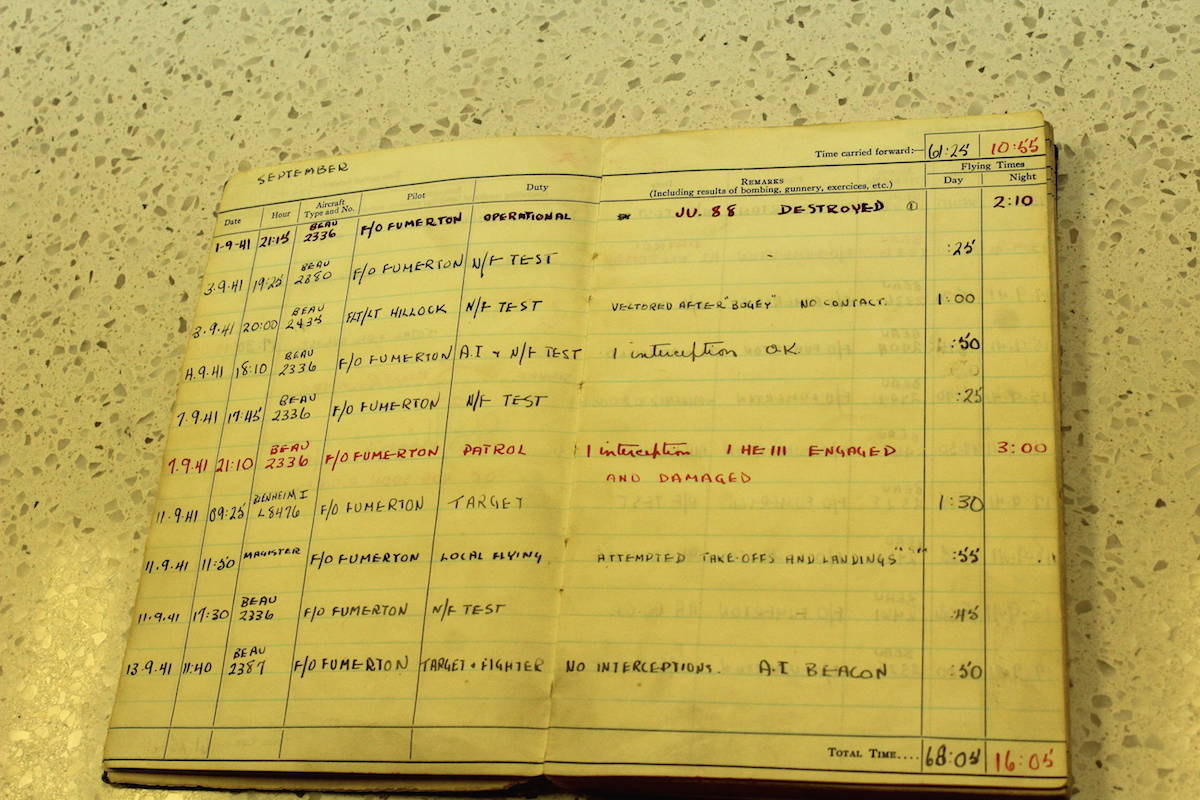 SEPTEMBER
Time carried forward:— 61:25 10:55
Date Hour Aircraft Type and No. Pilot Duty REMARKS (Including results of bombing, gunnery, exercices, etc.) Flying Times Day Night
1.9.41 21:15 BEAU 2336 F/O FUMERTON OPERATIONAL JU. 88 DESTROYED ① 2:10
3.9.41 19:25 BEAU 2280 F/O FUMERTON N/F TEST :25
3.9.41 20:00 BEAU 2435 FLT/LT HILLOCK N/F TEST VECTORED AFTER "BOGEY" NO CONTACT. 1:00
4.9.41 18:10 BEAU 2336 F/O FUMERTON A.I & N/F TEST 1 interception OK :50
7.9.41 17:45 BEAU 2336 F/O FUMERTON N/F TEST :25
7.9.41 21:10 BEAU 2336 F/O FUMERTON PATROL 1 interception 1 HE 111 ENGAGED 3:00
AND DAMAGED
11.9.41 09:25 BLENHEIM I L8476 F/O FUMERTON TARGET 1:30
11.9.41 11:50 MAGISTER F/O FUMERTON LOCAL FLYING ATTEMPTED TAKE-OFFS AND LANDINGS" "" :55
11.9.41 17:30 BEAU 2336 F/O FUMERTON N/F TEST :45
13.9.41 11:40 BEAU 2387 F/O FUMERTON TARGET & FIGHTER NO INTERCEPTIONS. A.I BEACON :50
TOTAL TIME.... 68:05 16:05